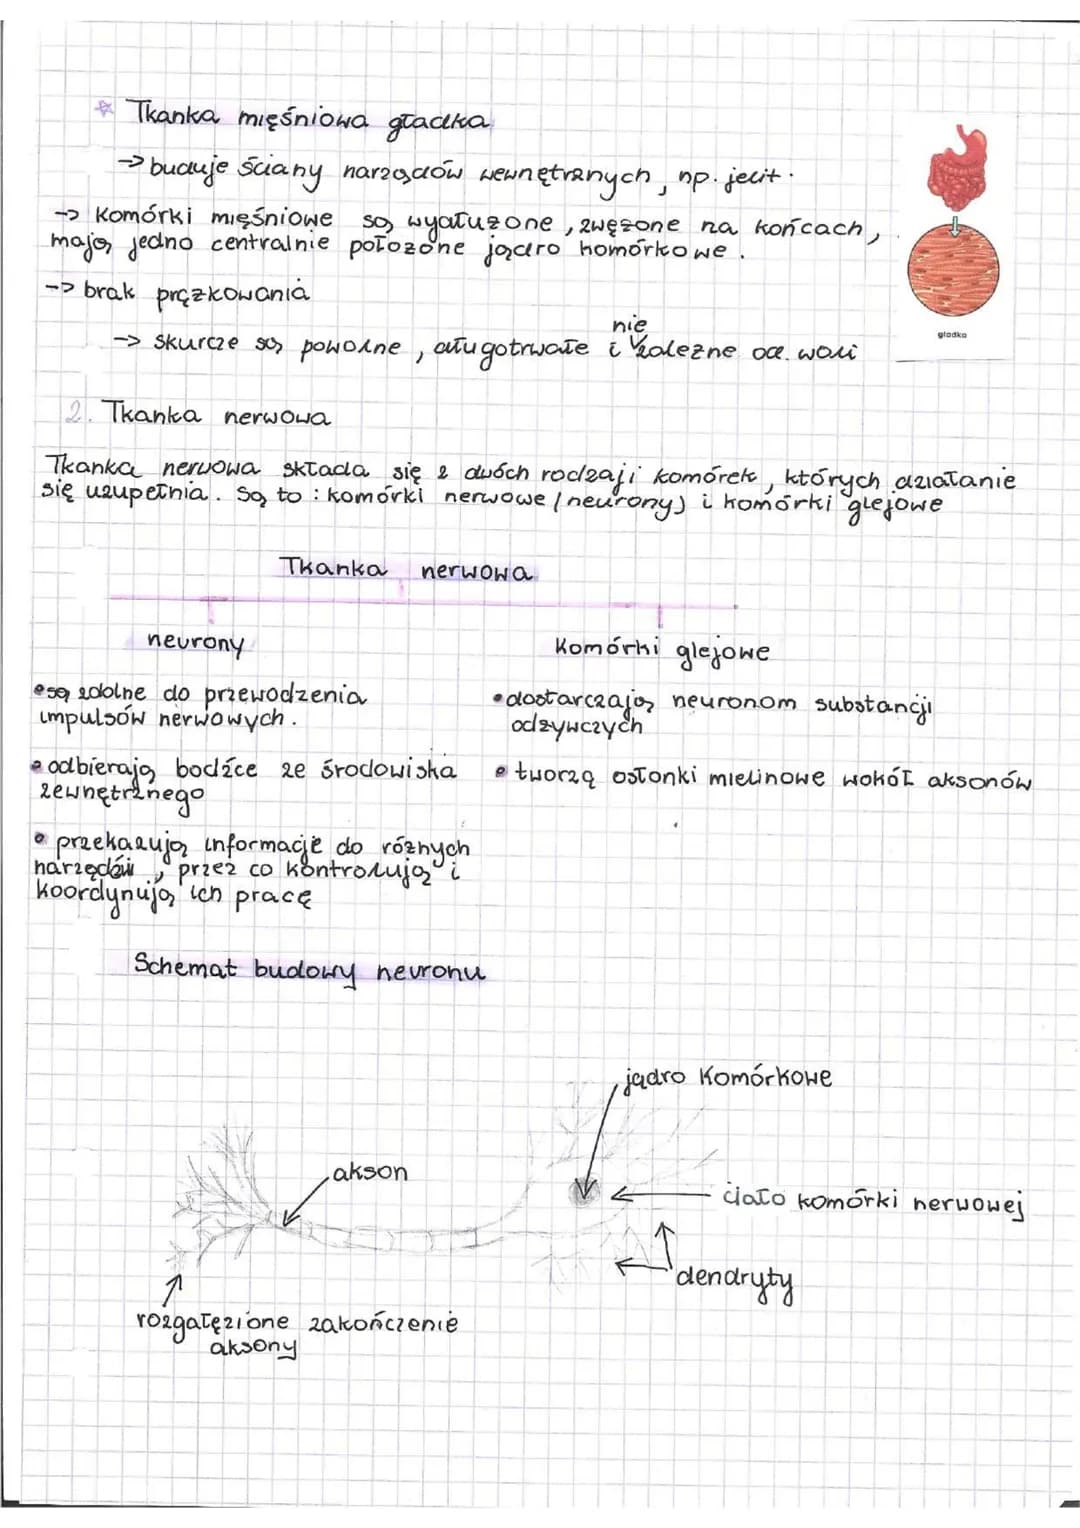 ☆ Tkanka mięśniowa gładka
-> buduje ściany narządów wewnętrznych, np. jelit.
-> Komórki mięśniowe są wydłużone, zwężone na końcach,
mają jedno centralnie położone jądro komórkowe.
-> brak prążkowania
-> skurcze są powolne, długotrwałe i niezależne od woli
gładka
2. Tkanka nerwowa
Tkanka nerwowa składa się z dwóch rodzaji komórek, których działanie
się uzupełnia. Są to: komórki nerwowe (neurony) i komórki glejowe
Tkanka nerwowa
neurony
• są zdolne do przewodzenia
impulsów nerwowych.
• odbierają bodźce ze środowiska
zewnętrznego
• przekazują informacje do różnych
narzędów, przez co kontrolują i
koordynują ich pracę
Komórki glejowe
• dostarczają neuronom substancji
odżywczych
• tworzą osłonki mielinowe wokół aksonów
Schemat budowy neuronu
jądro Komórkowe
akson
ciało komórki nerwowej
dendryty
rozgałęzione zakończenie
aksony